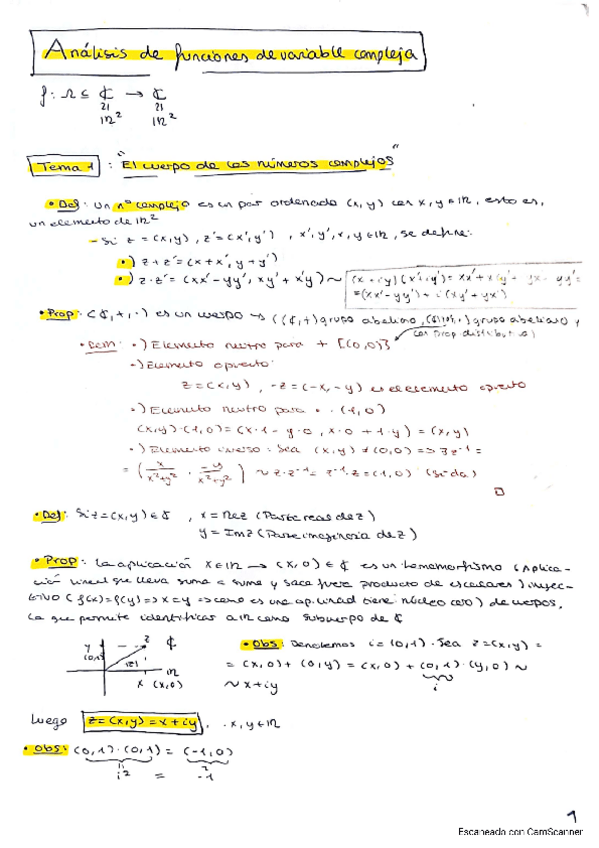 Análisis de funciones de variable compleja
f: Ω ⊆ ℂ → ℂ
≅ ≅
ℝ² ℝ²
Tema 1 : "El cuerpo de los números complejos"
• Def: Un nº complejo es un par ordenado (x,y) con x,y ∈ ℝ, esto es,
un elemento de ℝ²
- Si z = (x,y), z' = (x',y'), x',y',x,y ∈ ℝ, se define:
•) z+z' = (x+x', y+y')
•) z·z' = (xx'-yy', xy'+x'y) ~ (x+iy)(x'+iy') = xx'+x iy'+ yx - yy' =
= (xx'-yy')+i(xy'+yx')
• Prop: (ℂ,+,·) es un cuerpo → ((ℂ,+) grupo abeliano, grupo abeliano) y
con prop. distributiva)
• Dem: •) Elemento neutro para + [(0,0)]
•) Elemento opuesto:
z = (x,y), -z = (-x,-y) es el elemento opuesto
•) Elemento neutro para · . (1,0)
(x,y)·(1,0) = (x·1 - y·0, x·0 + 1·y) = (x,y)
•) Elemento inverso: Sea (x,y) ≠ (0,0) => ∃ z⁻¹ =
= (x/(x²+y²), -y/(x²+y²)) ~ z·z⁻¹ = z⁻¹·z = (1,0) (se da)
□
• Def: Si z=(x,y) ∈ ℂ, x = Re z (Parte real de z)
y = Im z (Parte imaginaria de z)
• Prop: La aplicación x ∈ ℝ → (x,0) ∈ ℂ es un homomorfismo (aplica-
ción lineal que lleva suma a suma y saca fuera producto de escalares) inyec-
tivo (f(x)=f(y) => x=y => como es una ap. lineal tiene núcleo cero) de cuerpos,
lo que permite identificar a ℝ como subcuerpo de ℂ
y z ℂ
(0,1) |z| ℝ
x (x,0)
• Obs: Denotemos i = (0,1). Sea z = (x,y) =
= (x,0) + (0,y) = (x,0) + (0,1)·(y,0) ~
i
~ x+iy
Luego z = (x,y) = x+iy, x,y ∈ ℝ
• Obs: (0,1)·(0,1) = (-1,0)
i² = -1
1
Escaneado con CamScanner